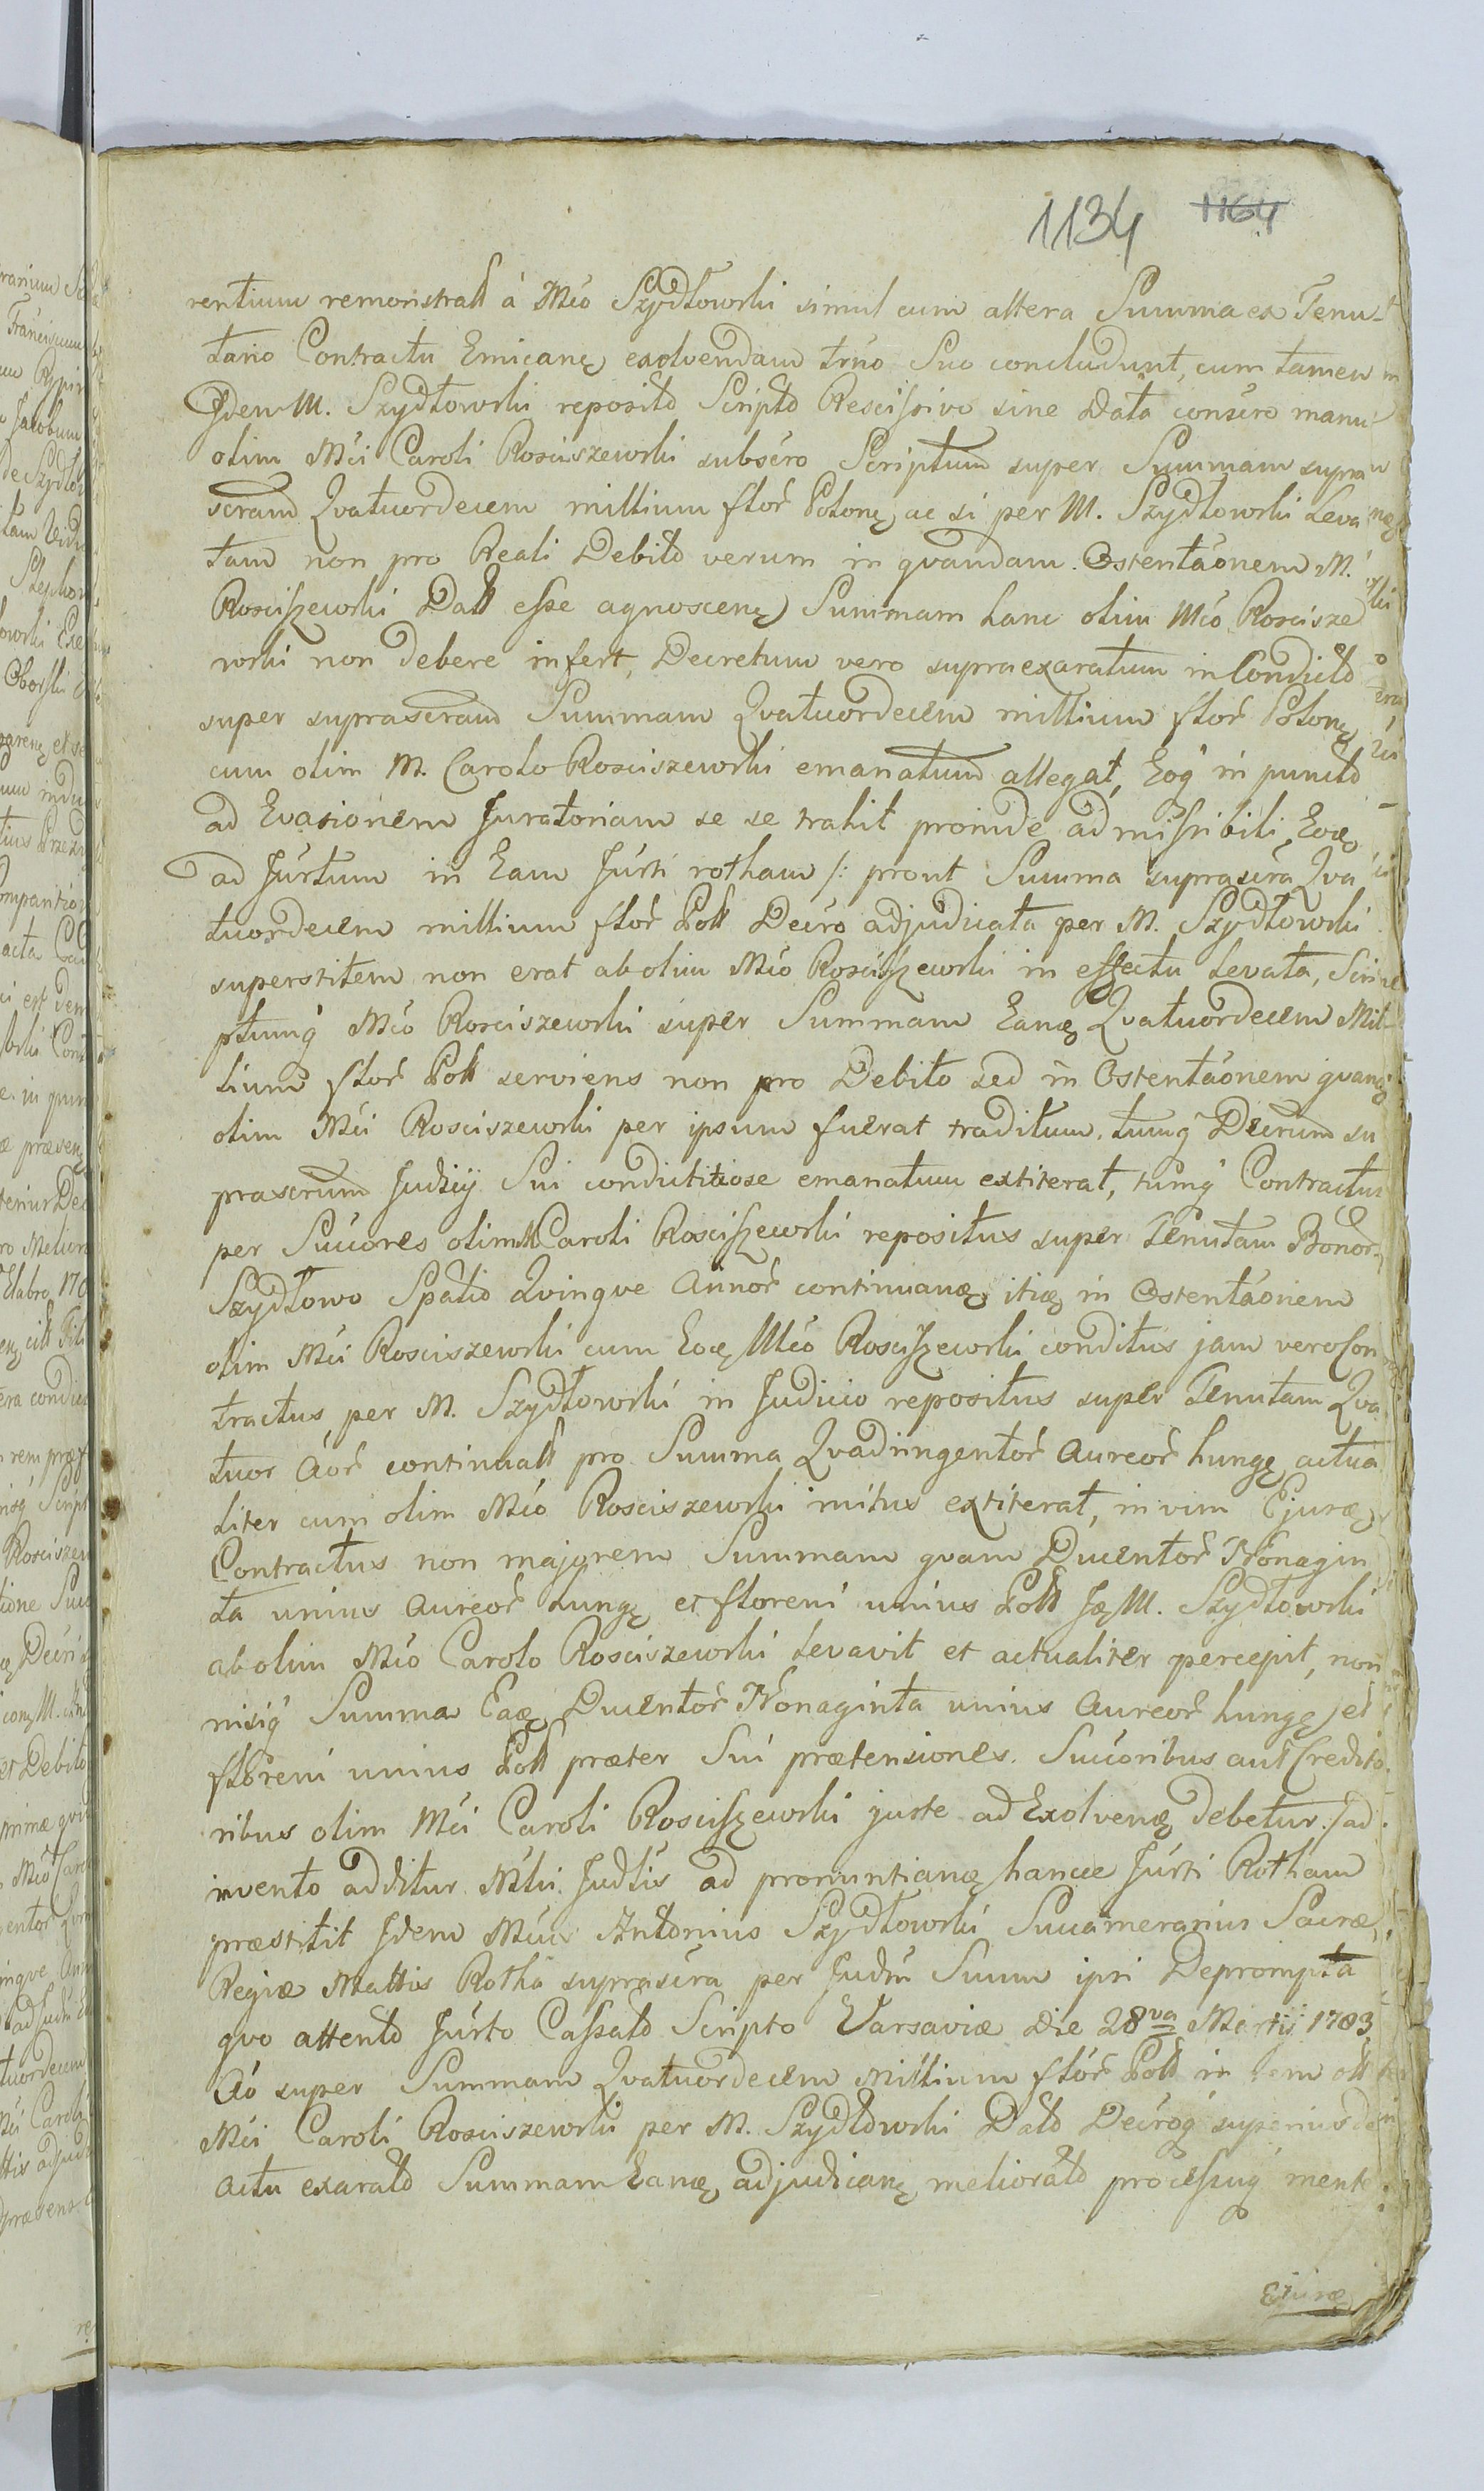 1134 1164
rentium remonstratt á Mco Szydłowski simul cum altera Summa ex Tenu-
tario Contractu Emicanę exolvendam trno Suo concludunt, cum tamen
Idem M. Szydłowski reposito Scripto Rescissivo sine Data conscro manu
olim Mci Caroli Rosciszewski subscro Scriptum super Summam supra
scram Qvatuordecem millium flor Polonę ac si per M. Szydłowski Leva
tam non pro Reali Debito verum in qvandam Ostentaonem M.
Rosciszewski Datt esse agnoscenę Summam hanc olim Mco Roscisze
wski non debere infert, Decretum vero supraexaratum in Condicto
super suprascram Summam Qvatuordecem millium flor Polonę
cum olim M. Carolo Rosciszewski emanatum allegat, Eoq in puncto
ad Evasionem Juratoriam se se trahit proinde admissibili Eoę
ad Jurtum in Eam Jurti rotham /: prout Summa suprascra Qva
tuordecem millium flor Poll Decro adjudicata per M. Szydłowski
superstitem non erat ab olim Mco Rosciszewski in effectu Levata, Scri
ptumq Mco Rosciszewski super Summam Eanę Qvatuordecem Mil-
lium flor Poll serviens non pro Debito sed in Ostentaonem qvanę
olim Mci Rosciszewski per ipsum fuerat traditum, tumq Decrum su
prascrum Judicij Sui condictitiose emanatum extiterat, tumq Contractus
per Succores olim M. Caroli Rosciszewski repositus super Tenutam Bonor
Szydłowo Spatio Qvinqve Annor continuanę itię in Ostentaonem
olim Mci Rosciszewski cum Eoę Mco Rosciszewski conditus jam vero Con
tractus per M. Szydłowski in Judicio repositus super Tenutam Qva
tuor Aor continuatt pro Summa Qvadringentor Aureor hungę actua
liter cum olim Mco Rosciszewski initus extiterat, in vim Ejurę
Contractus non majorem Summam qvam Ducentor Nonagin
ta unius Aureor hungę et floreni unius Poll Ję M. Szydłowski
ab olim Mco Carolo Rosciszewski Levavit et actualiter percepit, non
nisiq Summa Eaę Ducentor Nonaginta unius Aureor hungę et
floreni unius Poll præter Sui prætensiones Succoribus aut Credito
ribus olim Mci Caroli Rosciszewski juste ad Exolvenę debetur :/ ad
invento additur Mlri Judlis ad pronuntianę hance Jurti Rotham
præstitit Idem Mcus Antonius Szydłowski Succamerarius Sacræ
Regiæ Mattis Rotha suprascra per Judm Suum ipsi Deprompta
qvo attento Jurto Cassato Scripto Varsaviæ Die 28va Martij 1783
Ao super Summam Qvatuordecem Millium flor Poll in rem olt
Mci Caroli Rosciszewski per M. Szydłowski Dato Decroq superius de
actu exarato Summam Eanę adjudicanę meliorato processuq mente
Ejurę